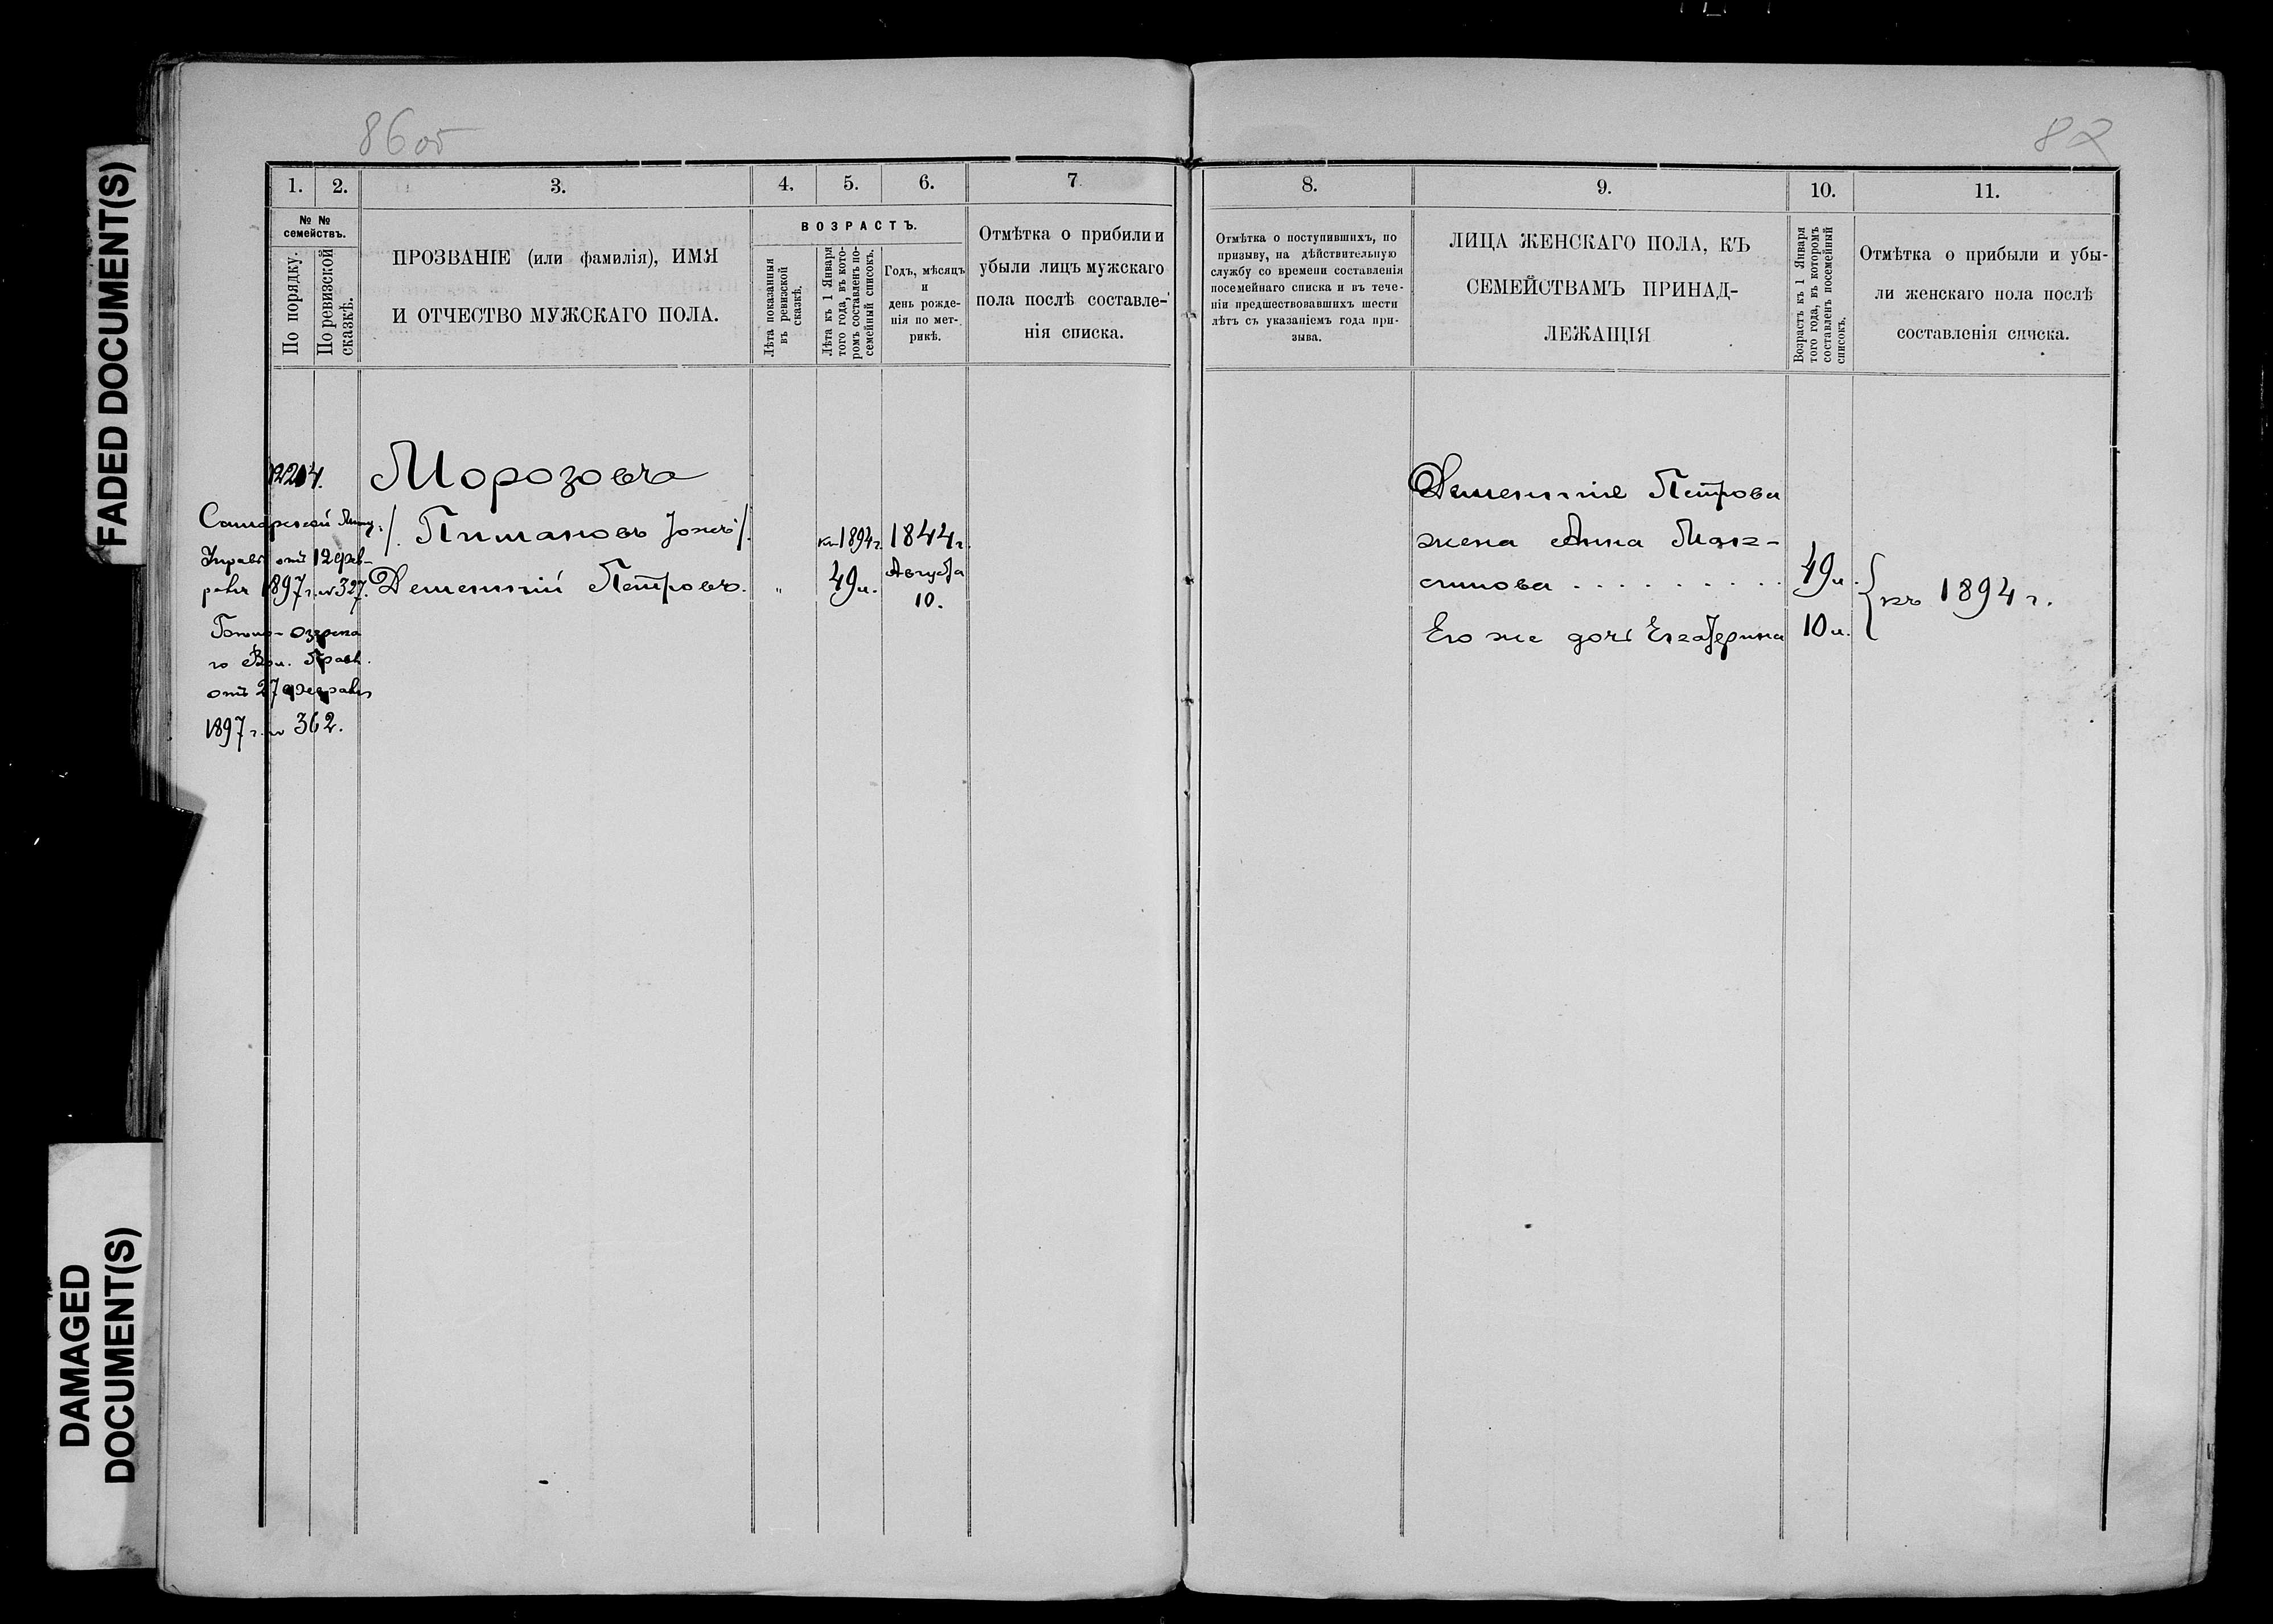 FADED DOCUMENT(S)
DAMAGED
DOCUMENT(S)
86об
1.
2.
3.
4.
5.
6.
7
№ №
семействъ.
По порядку.
По ревизской
сказкѣ.
ПРОЗВАНІЕ (или фамилія), ИМЯ
И ОТЧЕСТВО МУЖСКАГО ПОЛА.
ВОЗРАСТЪ.
Лѣта показанныя
въ ревизской
сказкѣ.
Лѣта къ 1 Января
того года, въ кото-
ромъ составленъ по-
семейный списокъ.
Годъ, мѣсяцъ
и
день рожде-
нія по мет-
рикѣ.
Отмѣтка о прибыли и
убыли лицъ мужскаго
пола послѣ составле-
нія списка.
1894 г.
Морозовъ
/. Пишановъ ./
Дементій Петровъ.
къ 1894 г.
49 л.
1844 г.
Августа
10.
Самарской
Управ. отъ 12 фев-
раля 1897 г. № 327.
Вол. Правл.
отъ 27 февраля
1897 г. № 362.
8.
9.
10.
11.
Отмѣтка о поступившихъ, по
призыву, на дѣйствительную
службу со времени составленія
посемейнаго списка и въ тече-
ніи предшествовавшихъ шести
лѣтъ съ указаніемъ года при-
зыва.
ЛИЦА ЖЕНСКАГО ПОЛА, КЪ
СЕМЕЙСТВАМЪ ПРИНАД-
ЛЕЖАЩІЯ
Возрастъ къ 1 Января
того года, въ которомъ
составленъ посемейный
списокъ.
Отмѣтка о прибыли и убы-
ли женскаго пола послѣ
составленія списка.
Дементія Петрова
жена Анна Мак-
симова . . . . . . . . . 49 л.
Его же дочь Екатерина 10 л.
къ 1894 г.